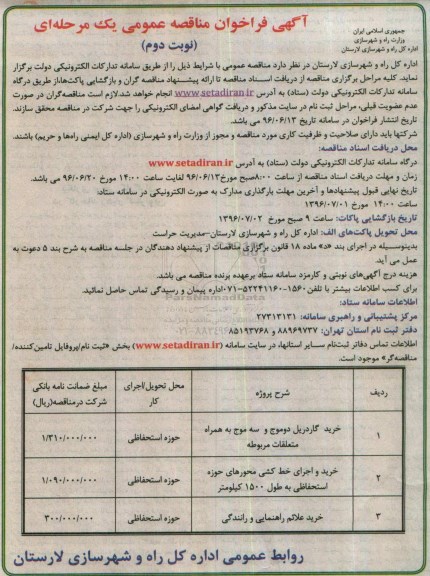 آگهی فراخوان مناقصه عمومی یک مرحله‌ای
(نوبت دوم)
جمهوری اسلامی ایران
وزارت راه و شهرسازی
اداره کل راه و شهرسازی لارستان
اداره کل راه و شهرسازی لارستان در نظر دارد مناقصه عمومی با شرایط ذیل را از طریق سامانه تدارکات الکترونیکی دولت برگزار
نماید. کلیه مراحل برگزاری مناقصه از دریافت اسناد مناقصه تا ارائه پیشنهاد مناقصه گران و بازگشایی پاکت‌ها، از طریق درگاه
سامانه تدارکات الکترونیکی دولت (ستاد) به آدرس www.setadiran.ir انجام خواهد شد. لازم است مناقصه‌گران در صورت
عدم عضویت قبلی، مراحل ثبت نام در سایت مذکور و دریافت گواهی امضای الکترونیکی را جهت شرکت در مناقصه محقق سازند.
تاریخ انتشار فراخوان در سامانه تاریخ ۹۶/۰۶/۱۳ می باشد.
شرکتها باید دارای صلاحیت و ظرفیت کاری مورد مناقصه و مجوز از وزارت راه و شهرسازی (اداره کل ایمنی راه‌ها و حریم) باشند.
محل دریافت اسناد مناقصه:
درگاه سامانه تدارکات الکترونیکی دولت (ستاد) به آدرس www.setadiran.ir
زمان و مهلت دریافت اسناد مناقصه از ساعت ۸:۰۰ صبح مورخ ۹۶/۰۶/۱۳ لغایت ساعت ۱۴:۰۰ مورخ ۹۶/۰۶/۲۰ می باشد.
تاریخ نهایی قبول پیشنهادها و آخرین مهلت بارگذاری مدارک به صورت الکترونیکی در سامانه ستاد:
ساعت ۱۴:۰۰ مورخ ۱۳۹۶/۰۷/۰۱
تاریخ بازگشایی پاکات: ساعت ۹ صبح مورخ ۱۳۹۶/۰۷/۰۲
محل تحویل پاکت‌های الف: اداره کل راه و شهرسازی لارستان-مدیریت حراست
بدینوسیله در اجرای بند «د» ماده ۱۸ قانون برگزاری مناقصات از پیشنهاد دهندگان در جلسه مناقصه به شرح بند ۵ دعوت به
عمل می آید.
هزینه درج آگهی‌های نوبتی و کارمزد سامانه ستاد برعهده برنده مناقصه می باشد.
برای کسب اطلاعات بیشتر با تلفن ۱۵۶۰-۵۲۲۴۱۱۶۰-۰۷۱ اداره پیمان و رسیدگی تماس حاصل نمائید.
اطلاعات سامانه ستاد:
مرکز پشتیبانی و راهبری سامانه: ۲۷۳۱۳۱۳۱
دفتر ثبت نام استان تهران: ۸۸۹۶۹۷۳۷ و ۸۵۱۹۳۷۶۸
اطلاعات تماس دفاتر ثبت‌نام سایر استانها، در سایت سامانه (www.setadiran.ir) بخش «ثبت نام/پروفایل تامین‌کننده/
مناقصه‌گر» موجود است.
ردیف | شرح پروژه | محل تحویل/اجرای کار | مبلغ ضمانت نامه بانکی شرکت درمناقصه(ریال)
۱ | خرید گاردریل دوموج و سه موج به همراه متعلقات مربوطه | حوزه استحفاظی | ۱/۳۱۰/۰۰۰/۰۰۰
۲ | خرید و اجرای خط کشی محورهای حوزه استحفاظی به طول ۱۵۰۰ کیلومتر | حوزه استحفاظی | ۱/۰۹۰/۰۰۰/۰۰۰
۳ | خرید علائم راهنمایی و رانندگی | حوزه استحفاظی | ۳۰۰/۰۰۰/۰۰۰
روابط عمومی اداره کل راه و شهرسازی لارستان